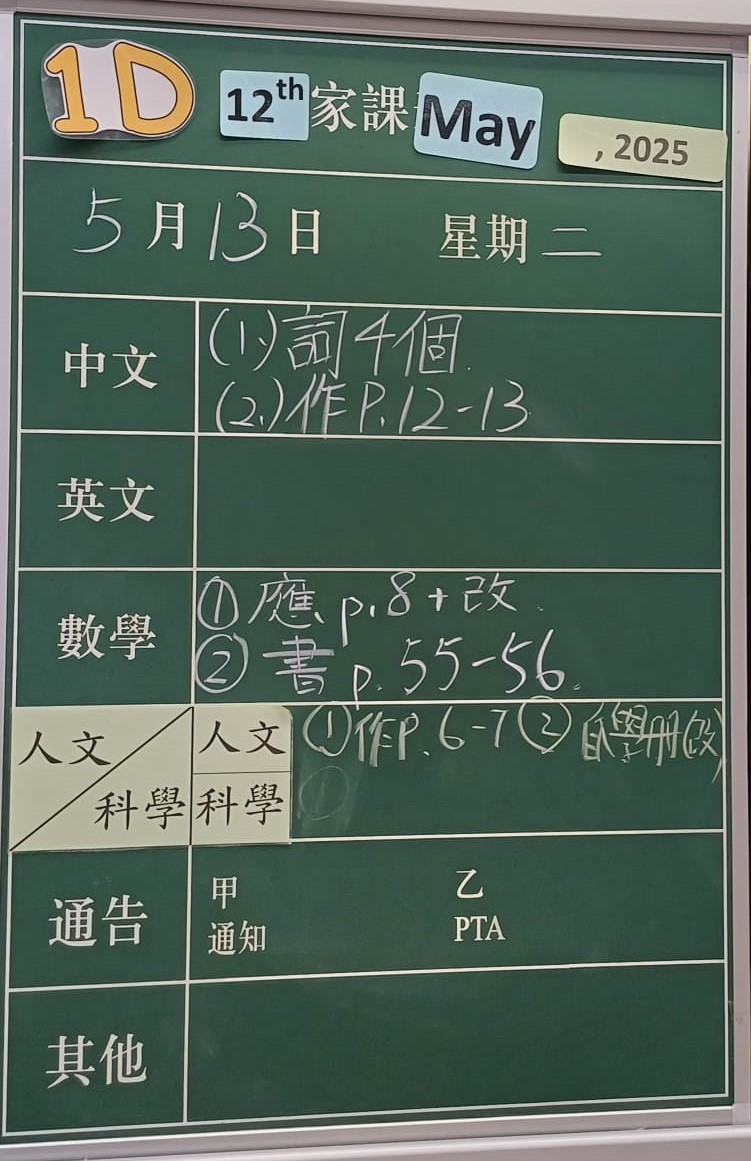 1D 12th 家課 May , 2025
5月13日 星期二
中文 (1.) 詞4個.
(2.) 作P.12-13
英文
數學 ① 應 p.8+改.
② 書 p.55-56.
人文/科學 人文 ① 作P.6-7 ② 自學册(改)
科學
通告 甲 乙
通知 PTA
其他